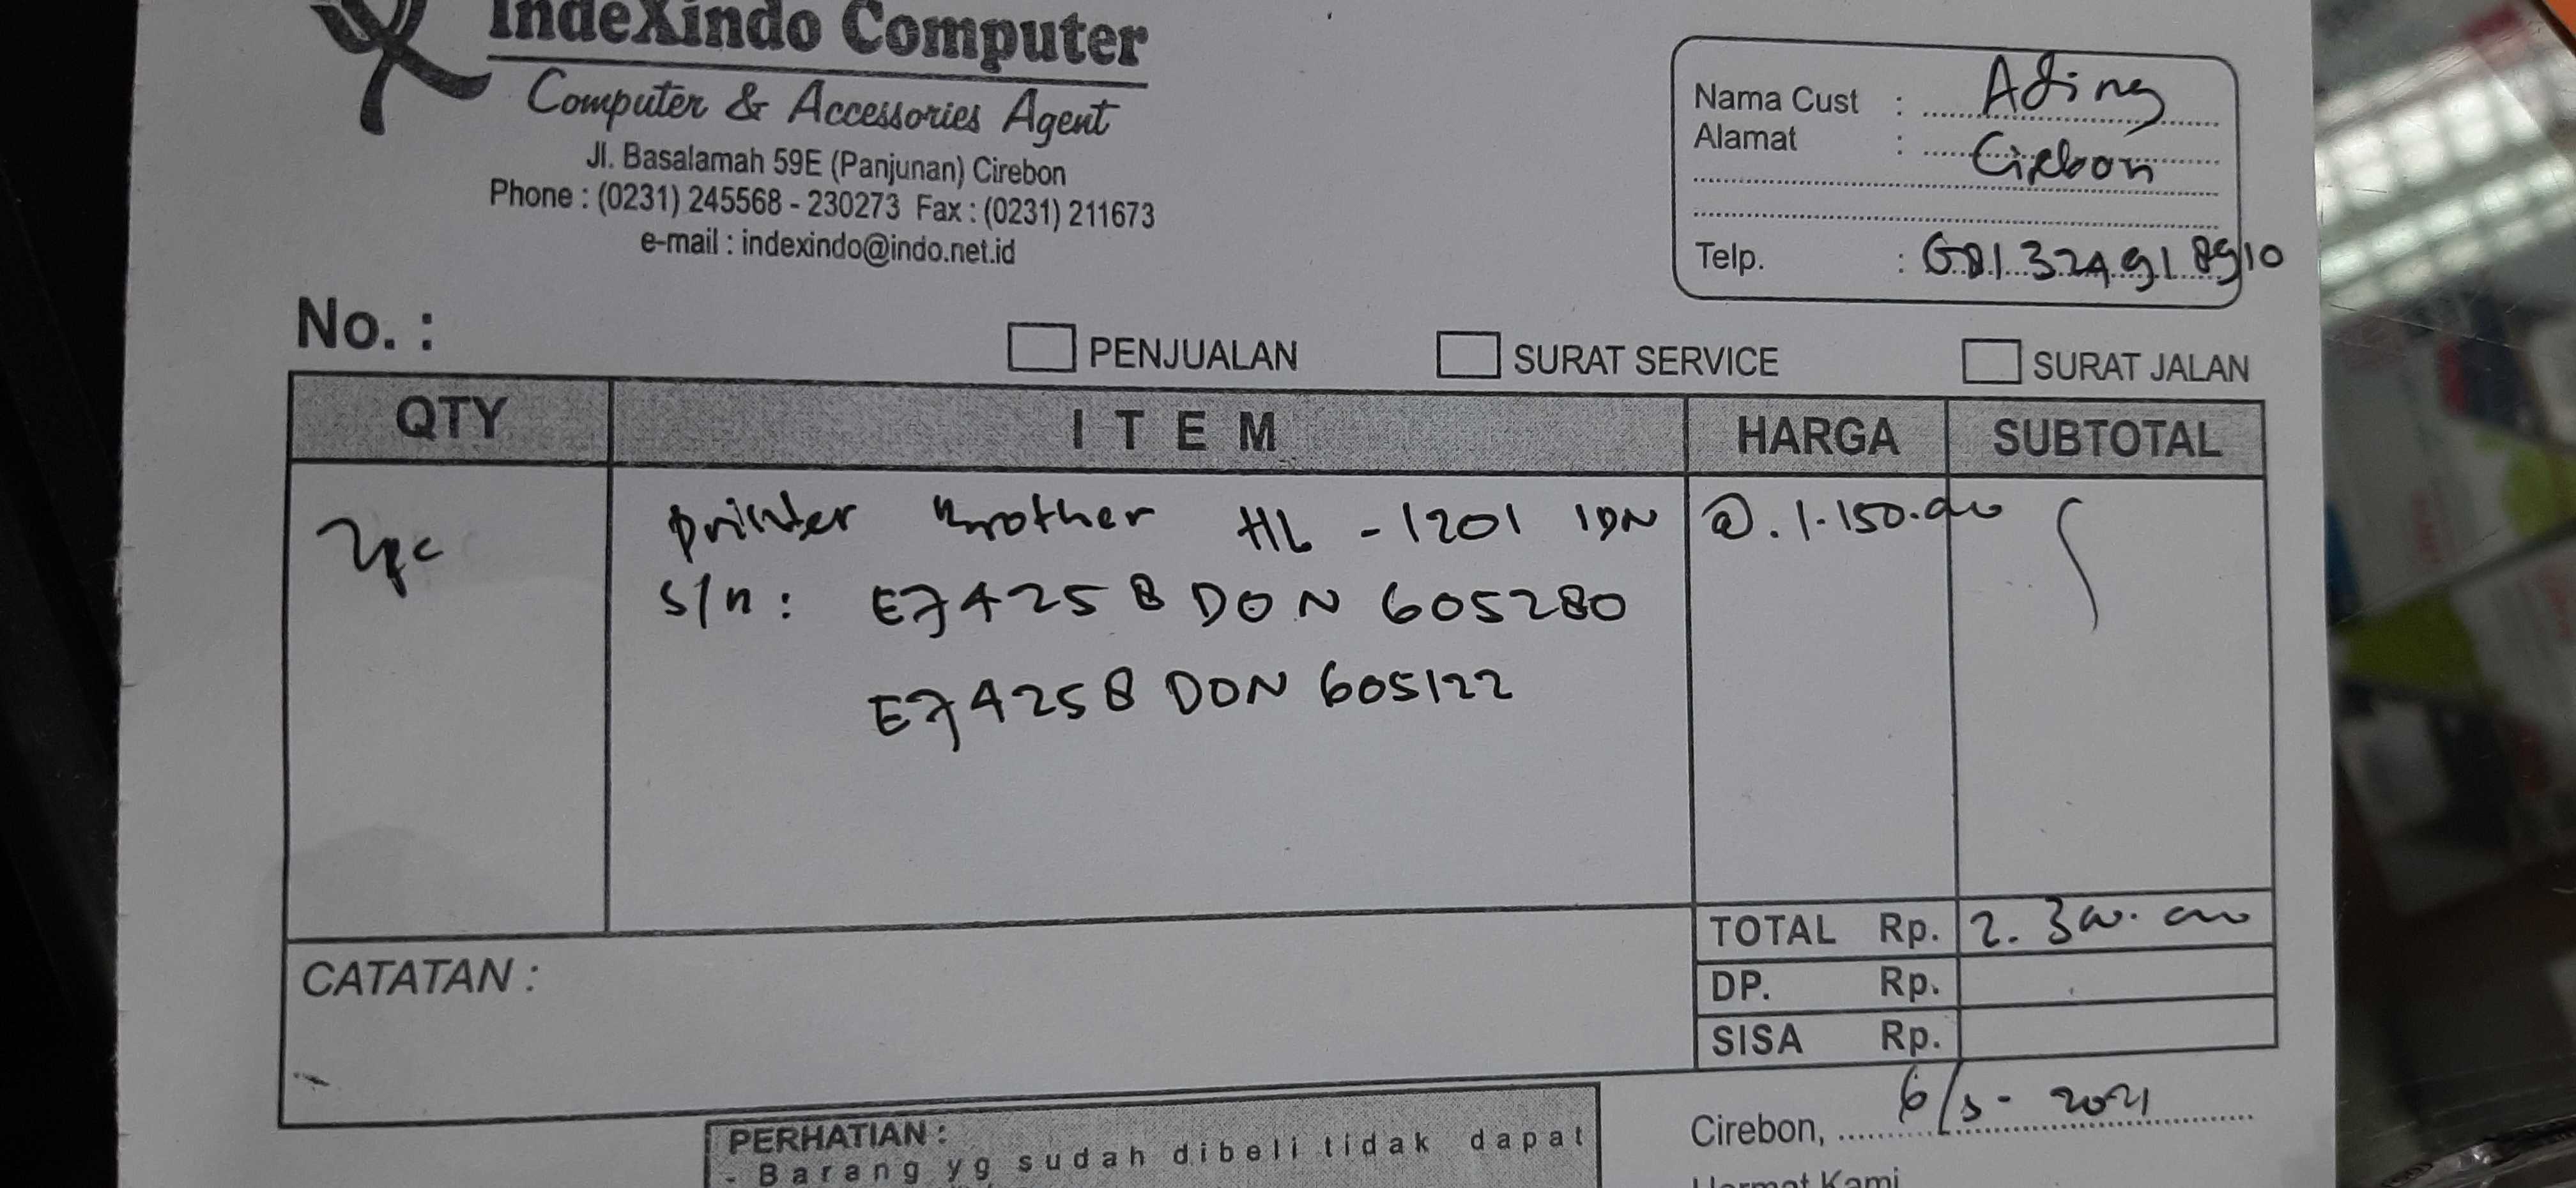 IndeXindo Computer
Computer & Accessories Agent
Jl. Basalamah 59E (Panjunan) Cirebon
Phone : (0231) 245568 - 230273 Fax : (0231) 211673
e-mail : indexindo@indo.net.id
Nama Cust : Ading
Alamat : Cirebon
Telp. : 081324918910
No. :
PENJUALAN SURAT SERVICE SURAT JALAN
QTY ITEM HARGA SUBTOTAL
2pc printer Brother HL - 1201 IDN @. 1.150.000
S/n : E74258 DON 605280
E74258 DON 605122
TOTAL Rp. 2.300.000
CATATAN :
DP. Rp.
SISA Rp.
Cirebon, 6/3 - 2021
PERHATIAN :
- Barang yg sudah dibeli tidak dapat
Hormat Kami